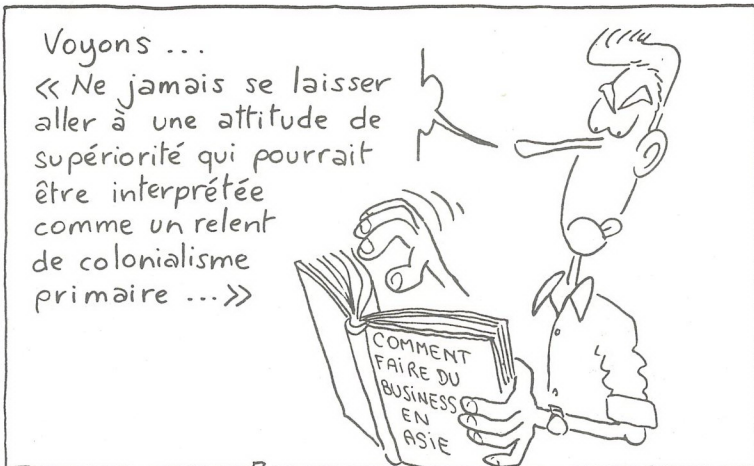 Voyons ...
« Ne jamais se laisser
aller à une attitude de
supériorité qui pourrait
être interprétée
comme un relent
de colonialisme
primaire ...»
COMMENT
FAIRE DU
BUSINESS
EN
ASIE